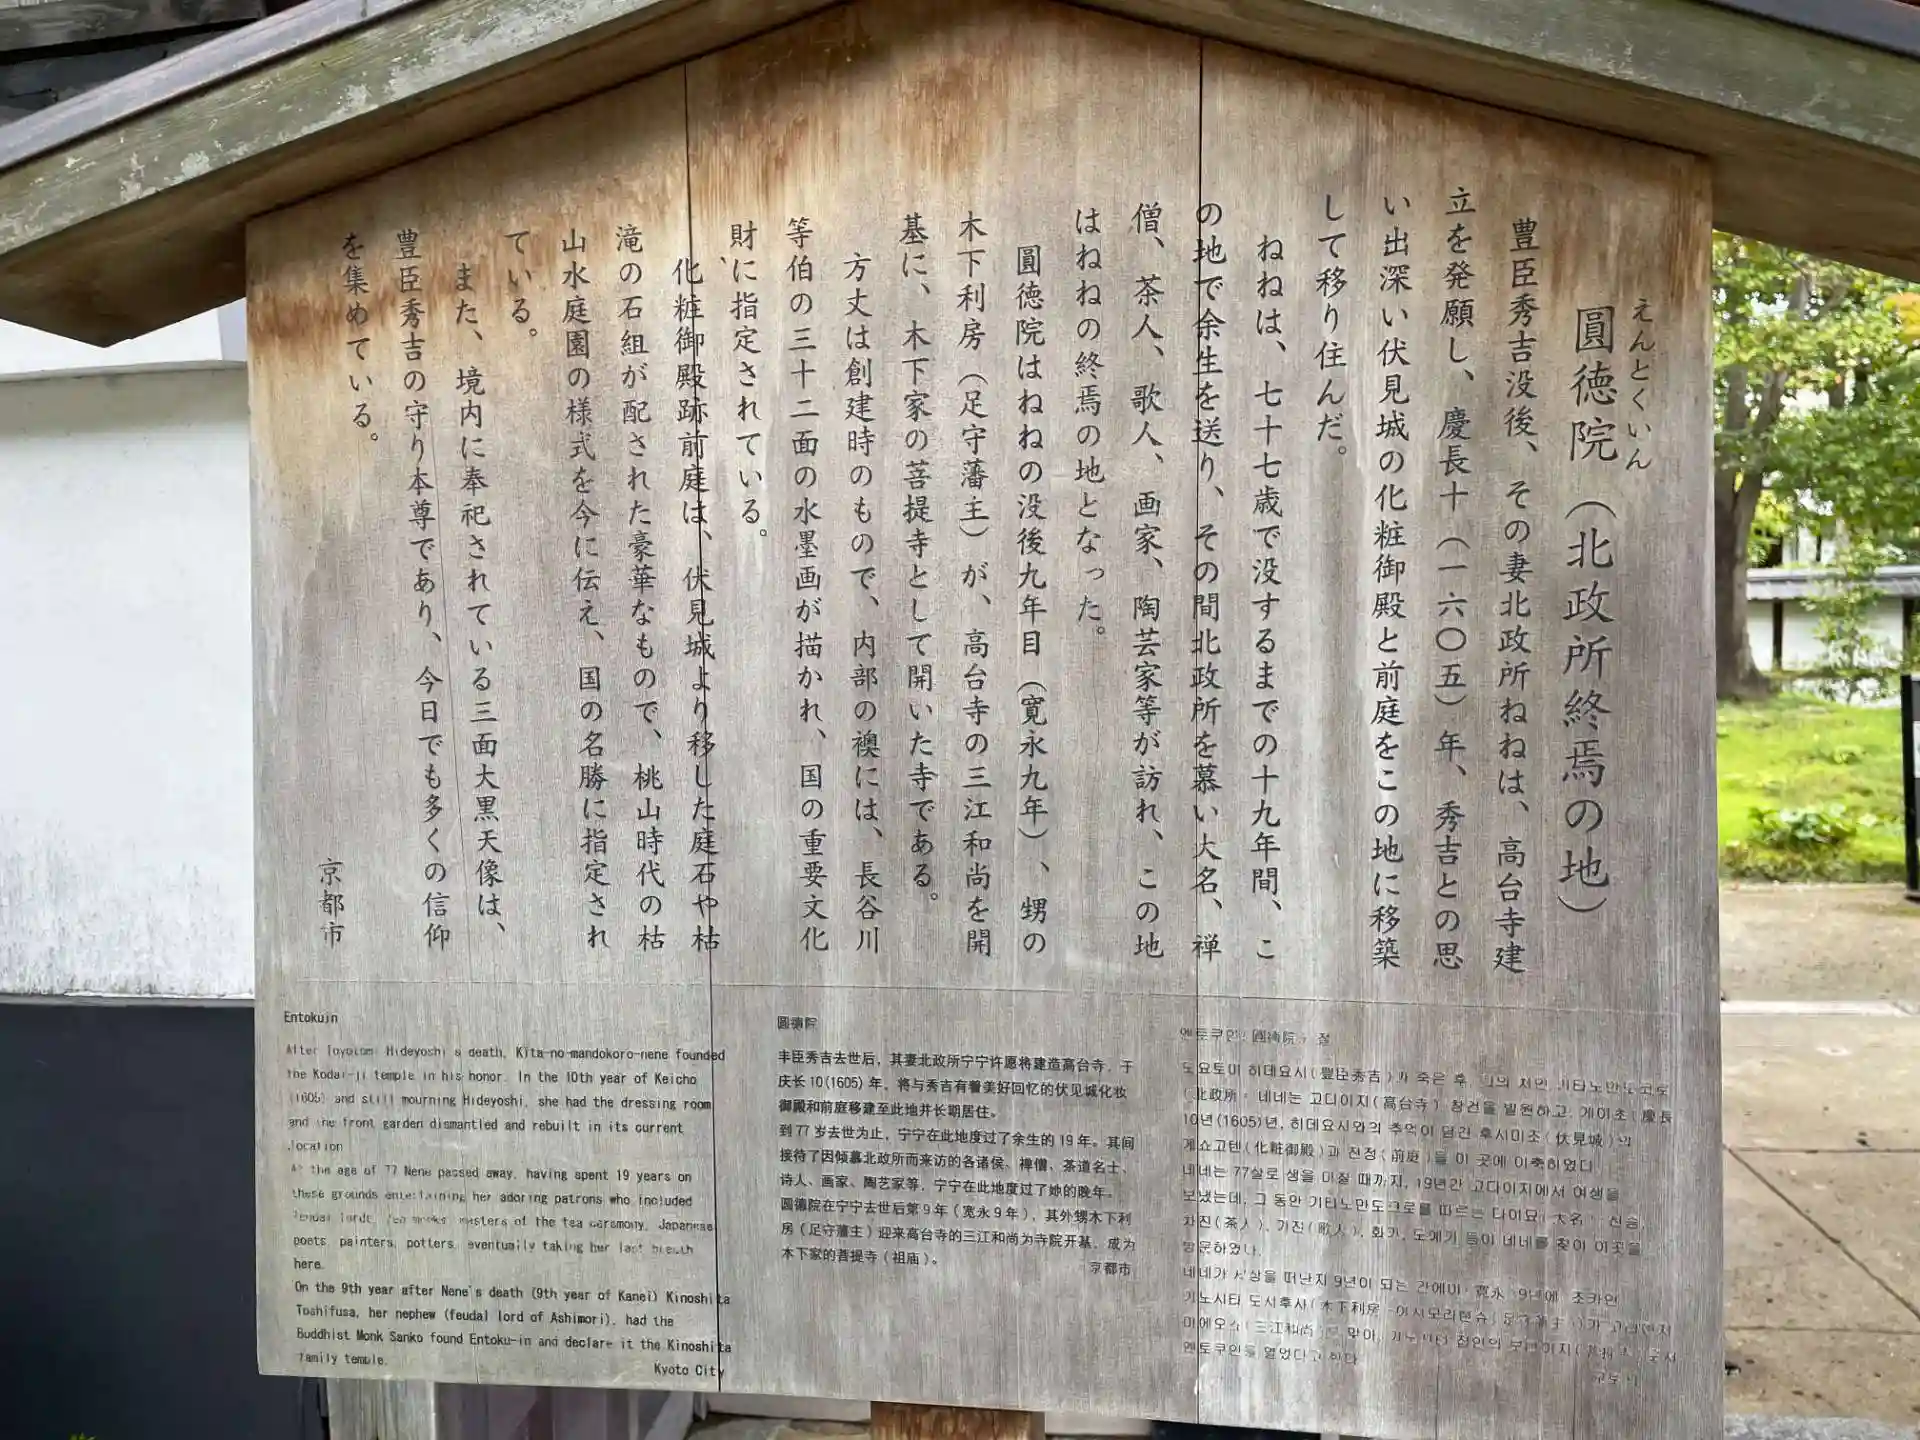 えんとくいん
圓徳院（北政所終焉の地）
豊臣秀吉没後、その妻北政所ねねは、高台寺建
立を発願し、慶長十（一六〇五）年、秀吉との思
い出深い伏見城の化粧御殿と前庭をこの地に移築
して移り住んだ。
ねねは、七十七歳で没するまでの十九年間、こ
の地で余生を送り、その間北政所を慕い大名、禅
僧、茶人、歌人、画家、陶芸家等が訪れ、この地
はねねの終焉の地となった。
圓徳院はねねの没後九年目（寛永九年）、甥の
木下利房（足守藩主）が、高台寺の三江和尚を開
基に、木下家の菩提寺として開いた寺である。
方丈は創建時のもので、内部の襖には、長谷川
等伯の三十二面の水墨画が描かれ、国の重要文化
財に指定されている。
化粧御殿跡前庭は、伏見城より移した庭石や枯
滝の石組が配された豪華なもので、桃山時代の枯
山水庭園の様式を今に伝え、国の名勝に指定され
ている。
また、境内に奉祀されている三面大黒天像は、
豊臣秀吉の守り本尊であり、今日でも多くの信仰
を集めている。
京都市
Entokuin
After Toyotomi Hideyoshi's death, Kita-no-mandokoro-nene founded
the Kodai-ji temple in his honor. In the 10th year of Keicho
(1605) and still mourning Hideyoshi, she had the dressing room
and the front garden dismantled and rebuilt in its current
location
At the age of 77 Nene passed away, having spent 19 years on
these grounds entertaining her adoring patrons who included
feudal lords, Zen monks, masters of the tea ceremony, Japanese
poets, painters, potters, eventually taking her last breath
here.
On the 9th year after Nene's death (9th year of Kanei) Kinoshita
Toshifusa, her nephew (feudal lord of Ashimori), had the
Buddhist Monk Sanko found Entoku-in and declare it the Kinoshita
family temple.
Kyoto City
圆德院
丰臣秀吉去世后，其妻北政所宁宁许愿将建造高台寺，于
庆长10(1605)年，将与秀吉有着美好回忆的伏见城化妆
御殿和前庭移建至此地并长期居住。
到77岁去世为止，宁宁在此地度过了余生的19年。其间
接待了因倾慕北政所而来访的各诸侯、禅僧、茶道名士、
诗人、画家、陶艺家等，宁宁在此地度过了她的晚年。
圆德院在宁宁去世后第9年（宽永9年），其外甥木下利
房（足守藩主）迎来高台寺的三江和尚为寺院开基，成为
木下家的菩提寺（祖庙）。
京都市
엔토쿠인(圓徳院) 절
도요토미 히데요시(豊臣秀吉)가 죽은 후, 의 처인 기타노만도코로
(北政所)네네는 고다이지(高台寺) 창건을 발원하고, 게이초(慶長)
10년(1605)년, 히데요시와의 추억이 담긴 후시미조(伏見城)의
게쇼고텐(化粧御殿)과 전정(前庭)을 이 곳에 이축하였다
네네는 77살로 생을 마칠 때까지, 19년간 고다이지에서 여생을
보냈는데, 그 동안 기타노만도코로를 따르는 다이묘(大名), 선승,
차진(茶人), 가진(歌人), 화가, 도예가 등이 네네를 찾아 이곳을
방문하였다.
네네가 세상을 떠난지 9년이 되는 간에이(寛永)9년에 조카인
기노시타 도시후사(木下利房)
(三江和尚) 맞아,
엔토쿠인을 열었다고 한다
교토시